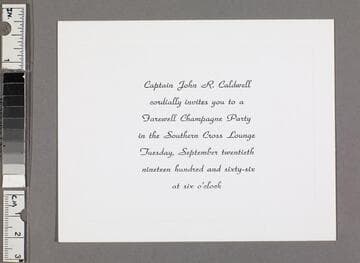 Captain John R. Caldwell
cordially invites you to a
Farewell Champagne Party
in the Southern Cross Lounge
Tuesday, September twentieth
nineteen hundred and sixty-six
at six o'clock
IN.
1
CM
2
3